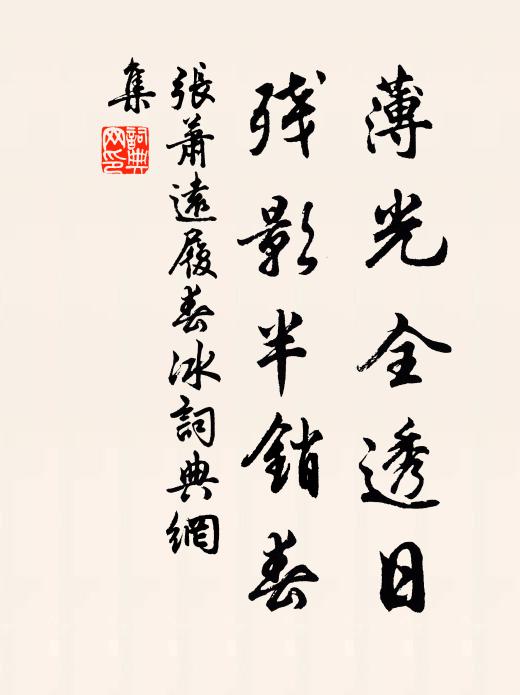 薄光全透日
残影半銷春
張蕭遠履春冰詞典網
集
詞典
网印